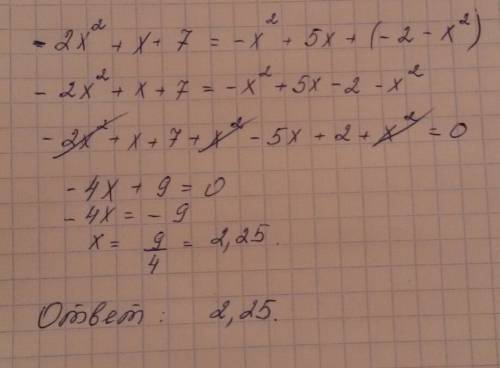 - 2x² + x + 7 = -x² + 5x + (-2 - x²)
- 2x² + x + 7 = -x² + 5x - 2 - x²
- 2x² + x + 7 + x² - 5x + 2 + x² = 0
- 4x + 9 = 0
- 4x = - 9
x = 9/4 = 2,25.
Ответ: 2,25.